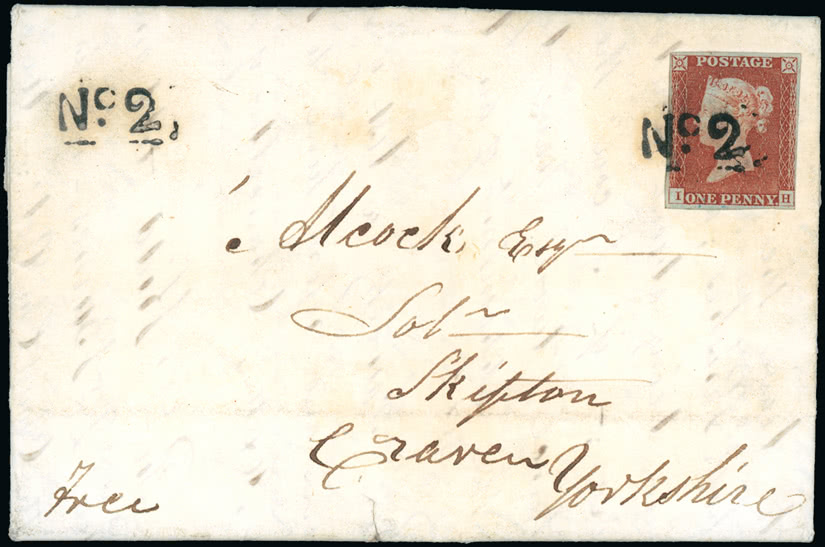 No. 2.
POSTAGE
No. 2.
I ONE PENNY H
Alcock, Esqr
Solr
Skipton
Craven Yorkshire
Free